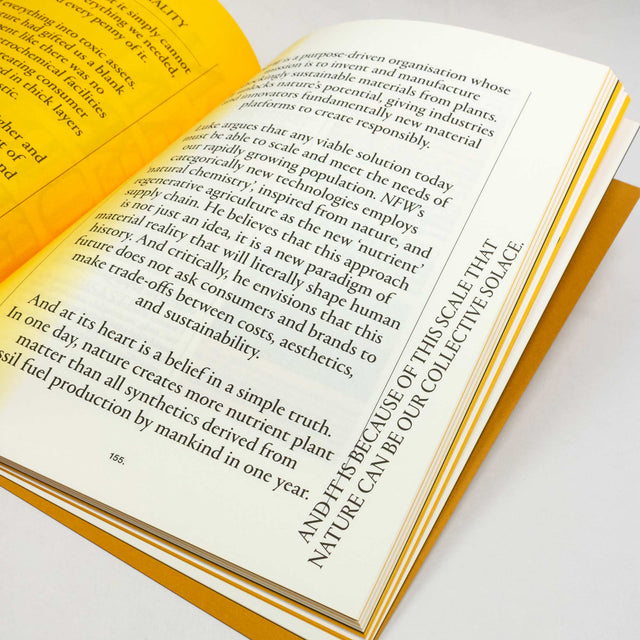 ALITY
it simply cannot
everything we needed,
every penny of it.
everything into toxic assets.
ture had gifted us a blank
ent like there was no
trochemical facilities
reating consumer
d in thick layers
tic.
her and
t of
and
a purpose-driven organisation whose
is to invent and manufacture
sustainable materials from plants.
nature's potential, giving industries
fundamentally new material
platforms to create responsibly.
Luke argues that any viable solution today
must be able to scale and meet the needs of
our rapidly growing population. NFW's
categorically new technologies employs
'natural chemistry', inspired from nature, and
regenerative agriculture as the new 'nutrient'
supply chain. He believes that this approach
is not just an idea, it is a new paradigm of
material reality that will literally shape human
history. And critically, he envisions that this
future does not ask consumers and brands to
make trade-offs between costs, aesthetics,
and sustainability.
And at its heart is a belief in a simple truth.
In one day, nature creates more nutrient plant
matter than all synthetics derived from
ssil fuel production by mankind in one year.
155.
AND IT IS BECAUSE OF THIS SCALE THAT
NATURE CAN BE OUR COLLECTIVE SOLACE.